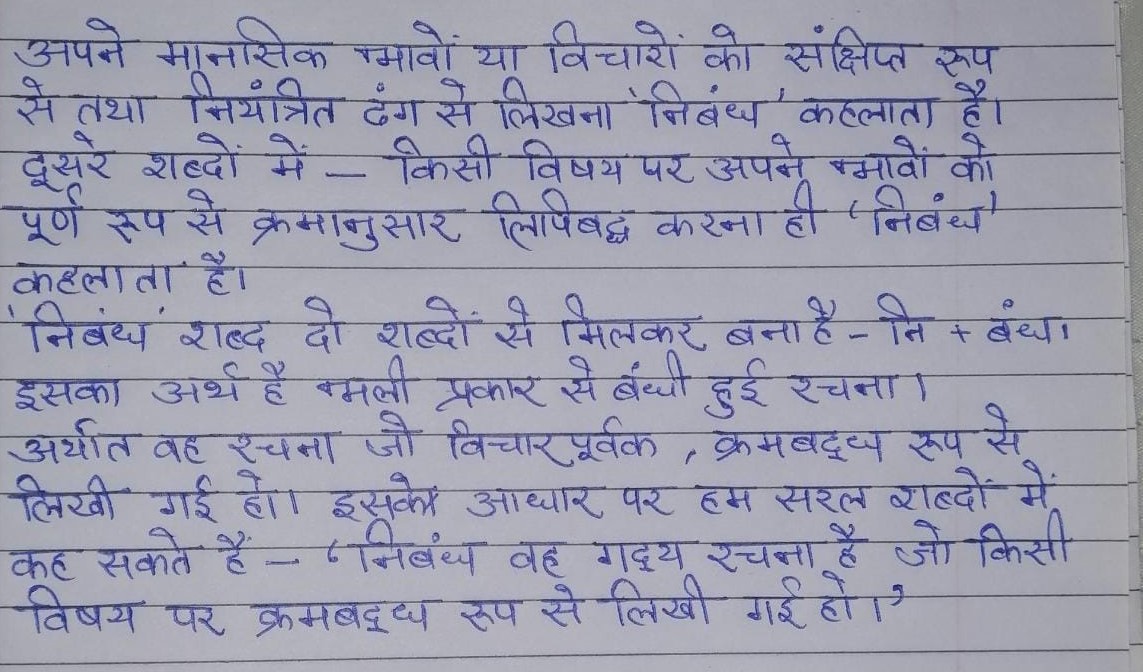 अपने मानसिक भावों या विचारों को संक्षिप्त रूप
से तथा नियंत्रित ढंग से लिखना 'निबंध' कहलाता है।
दूसरे शब्दों में – किसी विषय पर अपने भावों को
पूर्ण रूप से क्रमानुसार लिपिबद्ध करना ही 'निबंध'
कहलाता है।
'निबंध' शब्द दो शब्दों से मिलकर बना है – नि + बंध।
इसका अर्थ है भली प्रकार से बंधी हुई रचना।
अर्थात वह रचना जो विचारपूर्वक, क्रमबद्ध रूप से
लिखी गई हो। इसके आधार पर हम सरल शब्दों में
कह सकते हैं – 'निबंध वह गद्य रचना है जो किसी
विषय पर क्रमबद्ध रूप से लिखी गई हो।'